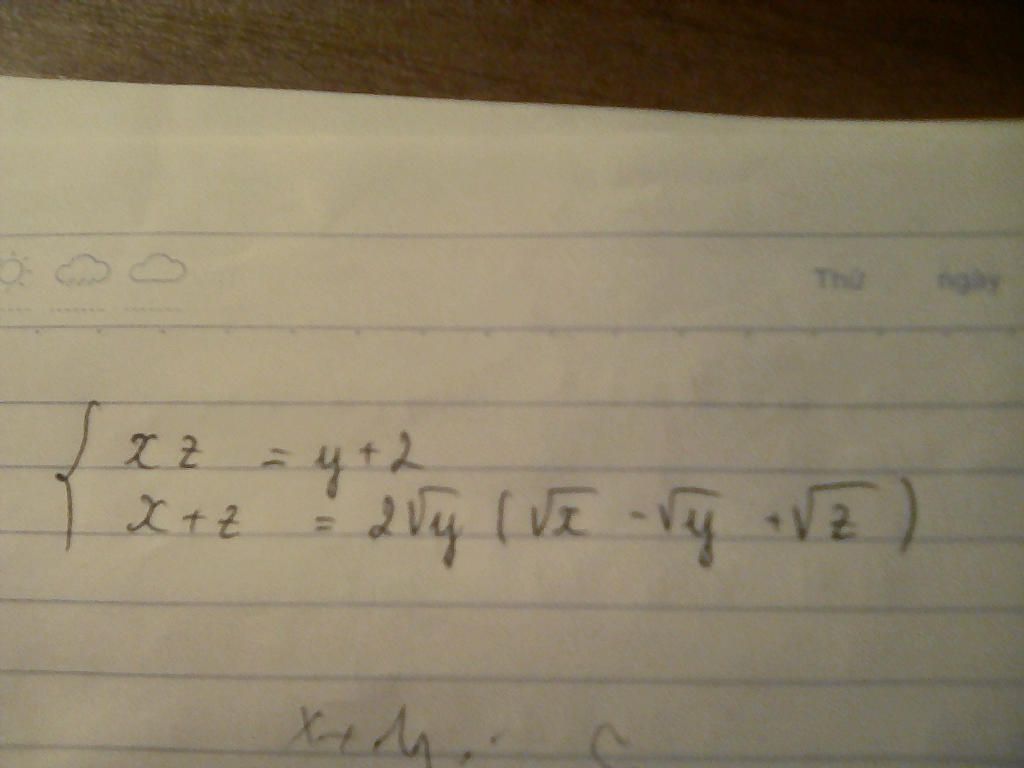 Thứ ngày
xz = y + 2
x + z = 2√y (√x - √y + √z)